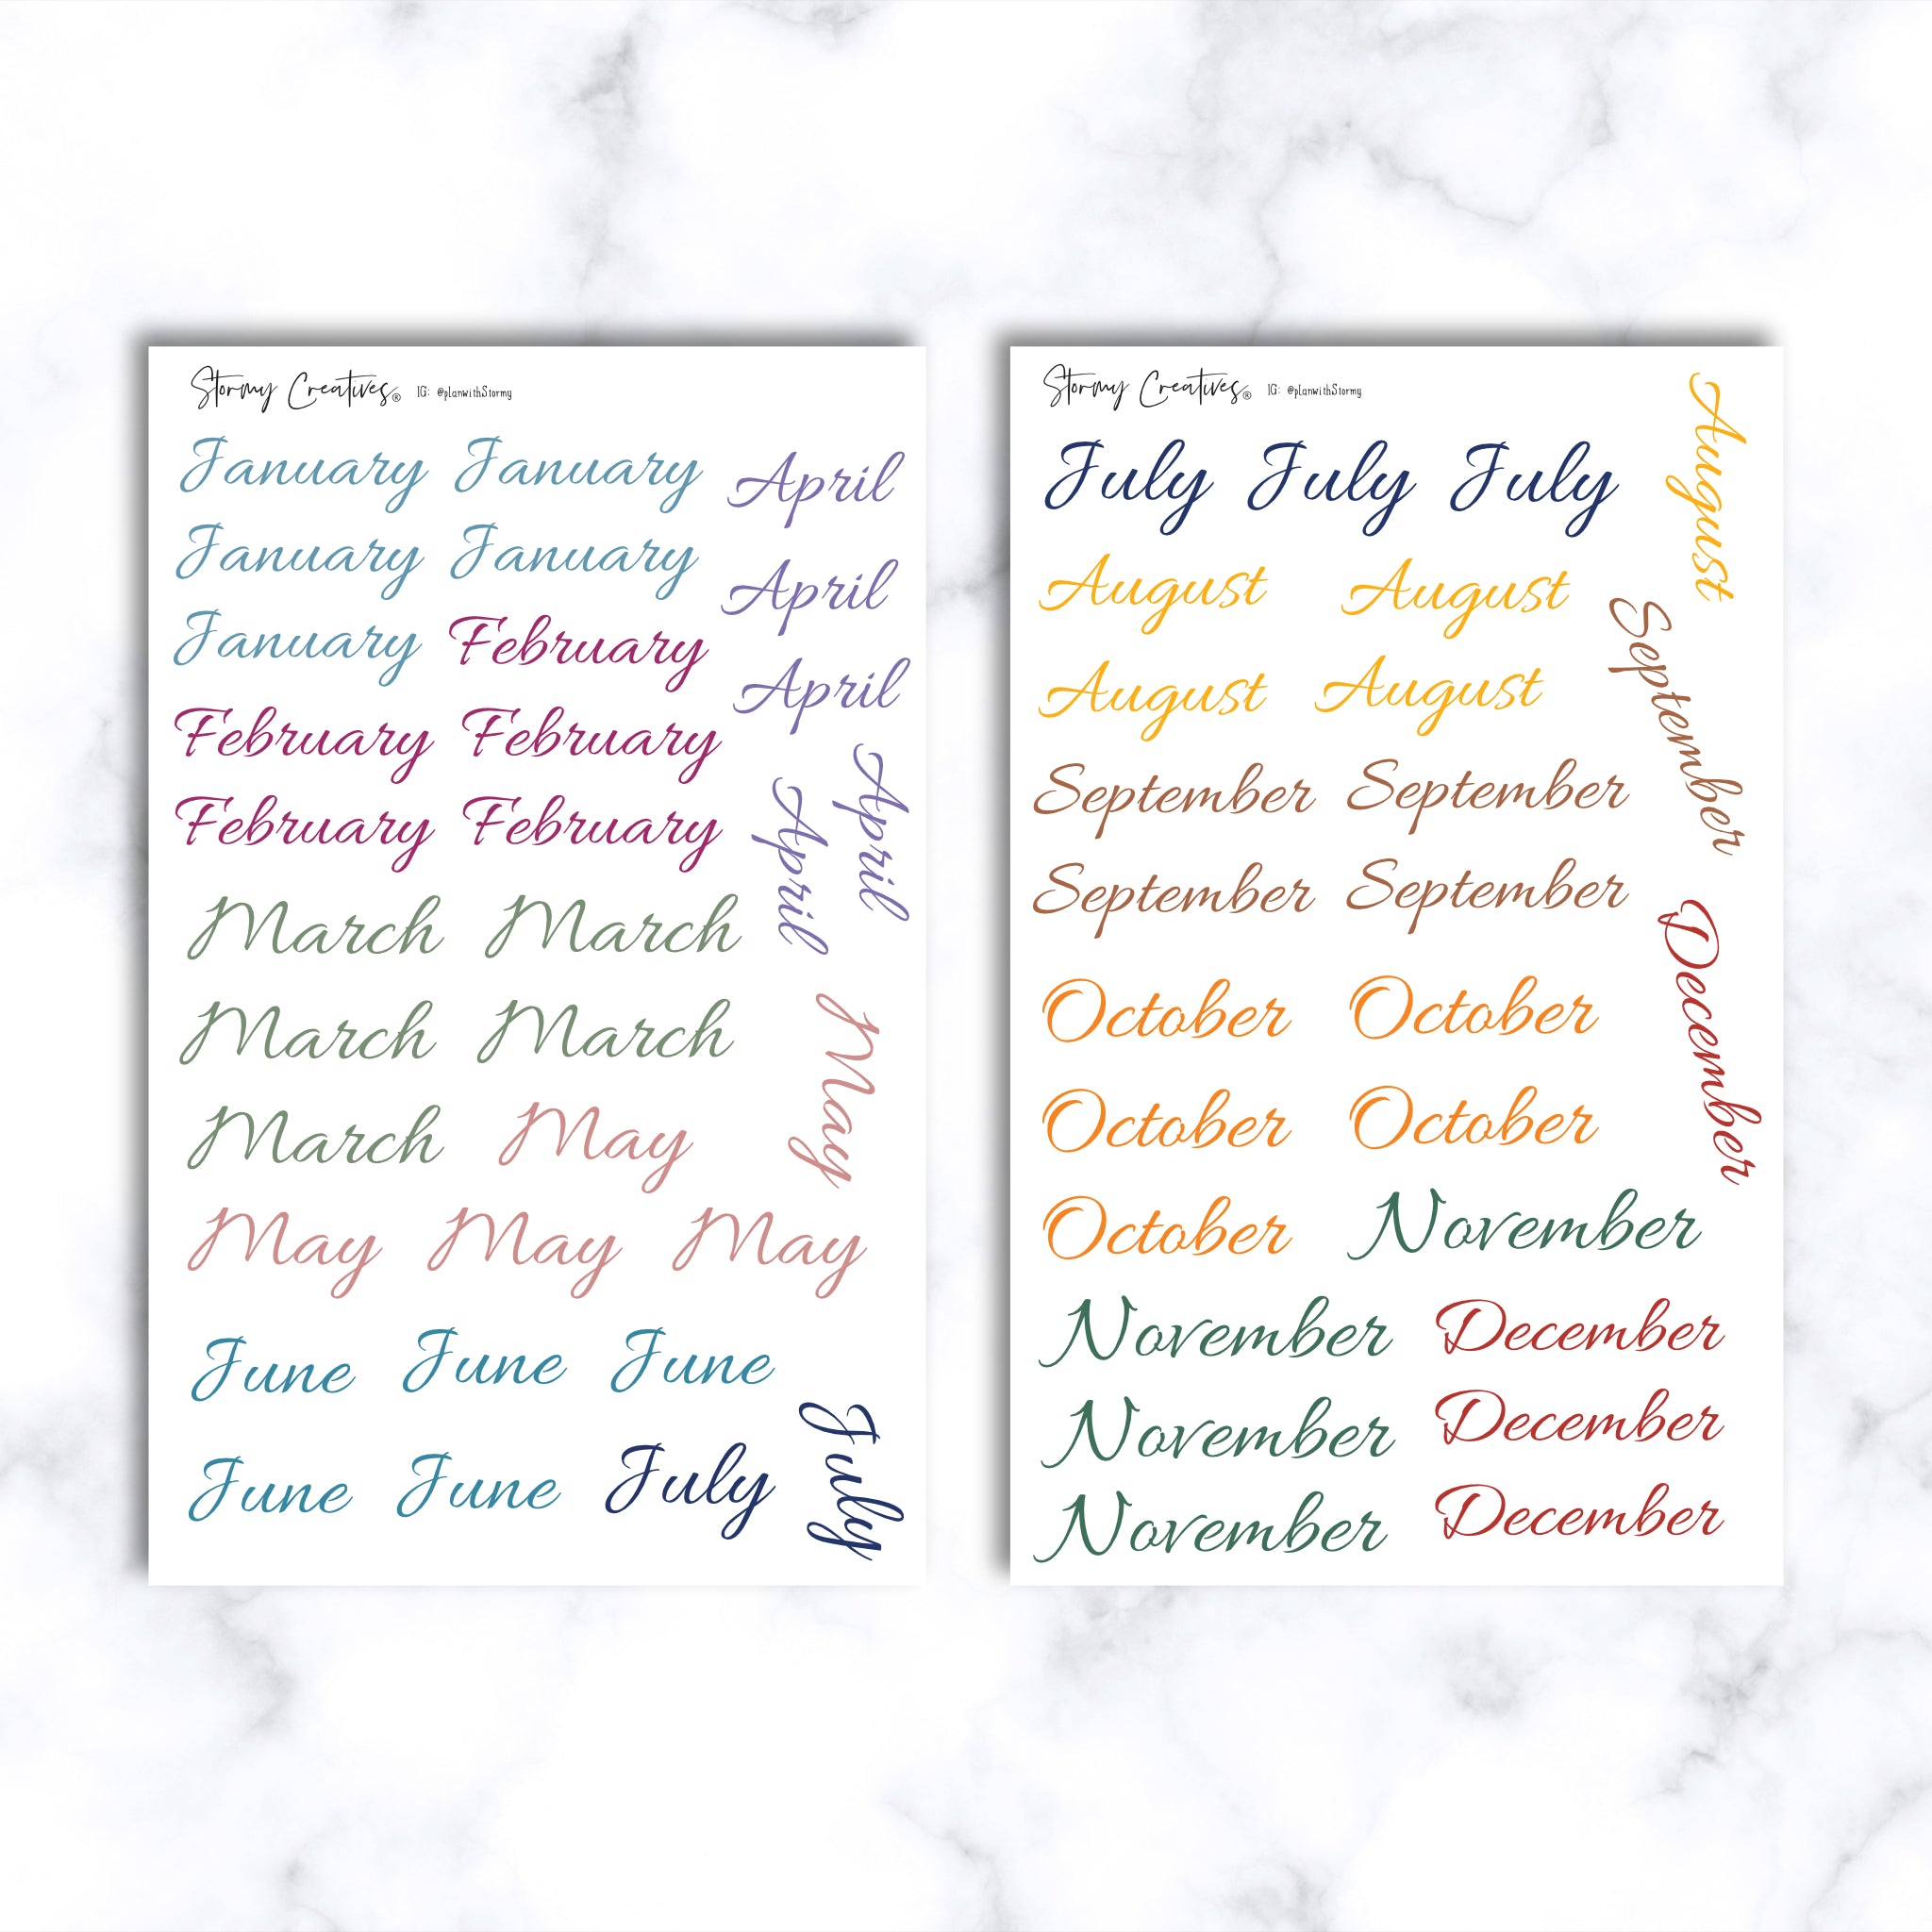 Stormy Creatives® IG: @planwithStormy
January January April
January January April
January February April
February February
February February April April
March March
March March May
March May
May May May
June June June
June June July July
Stormy Creatives® IG: @planwithStormy
July July July August
August August
August August September
September September
September September
October October December
October October
October November
November December
November December
November December